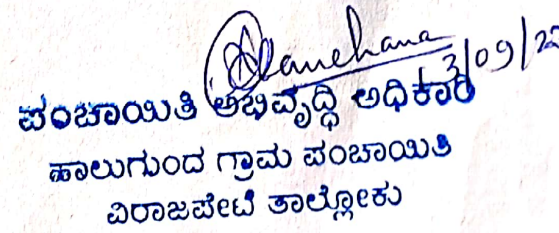 3/09/25
ಪಂಚಾಯಿತಿ ಅಭಿವೃದ್ಧಿ ಅಧಿಕಾರಿ
ಹಾಲುಗುಂದ ಗ್ರಾಮ ಪಂಚಾಯಿತಿ
ವಿರಾಜಪೇಟೆ ತಾಲ್ಲೋಕು